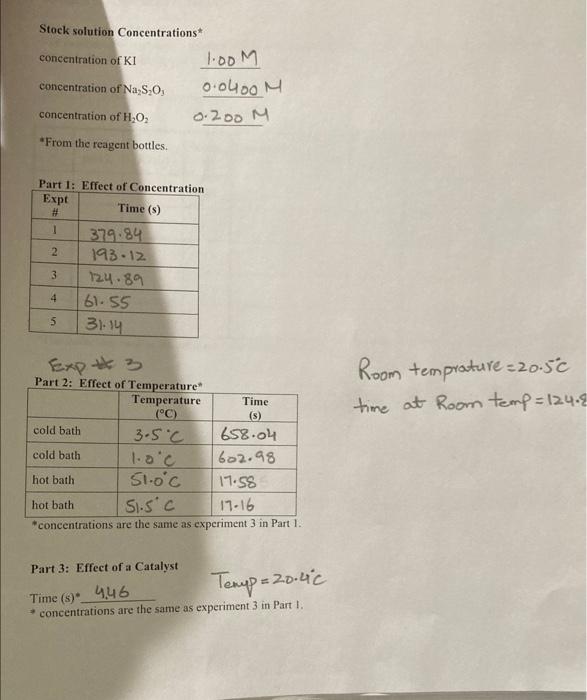 Stock solution Concentrations*
concentration of KI 1.00 M
concentration of Na₂S₂O₃ 0.0400 M
concentration of H₂O₂ 0.200 M
*From the reagent bottles.
Part 1: Effect of Concentration
Expt # Time (s)
1 379.84
2 193.12
3 124.89
4 61.55
5 31.14
Exp # 3
Room temprature = 20.5°C
Part 2: Effect of Temperature*
time at Room temp = 124.8
Temperature (°C) Time (s)
cold bath 3.5°C 658.04
cold bath 1.0°C 602.98
hot bath 51.0°C 17.58
hot bath 51.5°C 17.16
*concentrations are the same as experiment 3 in Part 1.
Part 3: Effect of a Catalyst
Temp = 20.4°C
Time (s)* 4.46
* concentrations are the same as experiment 3 in Part 1.